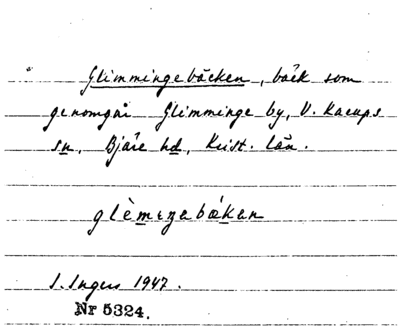 Glimmingebäcken, bäck som
genomgår Glimminge by, V. Karups
sn, Bjäre hd, Krist. län.
glèmeŋabákan
I. Ingers 1947.
Nr 5324.